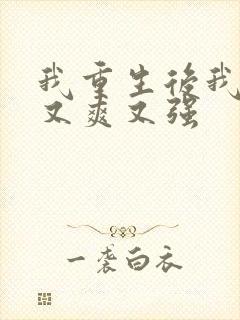 我重生后我
又爽又强
一袭白衣